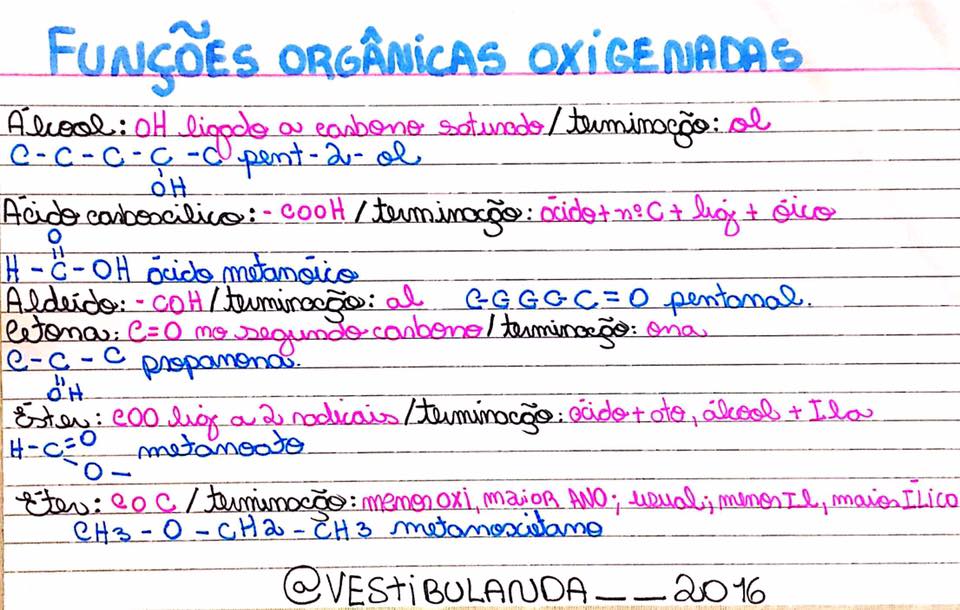 FUNÇÕES ORGÂNICAS OXIGENADAS
Álcool: OH ligado a carbono saturado / terminação: ol
C - C - C - C - C pent - 2 - ol
OH
Ácido carboxcílico: - COOH / terminação: ácido + nº C + lig + óico
O
H - C - OH ácido metanóico
Aldeído: - COH / terminação: al C-C-C-C-C = O pentanal.
Cetona: C=O no segundo carbono / terminação: ona
C - C - C propanona.
OH
Éster: COO lig a 2 radicais / terminação: ácido + ato, álcool + Ila
H - C = O metanoato
O -
Éter: COC / terminação: menor oxi, maior ANO; usual; menor Il, maior ÍLico
CH3 - O - CH2 - CH3 metanoxietano
@VESTIBULANDA__2016